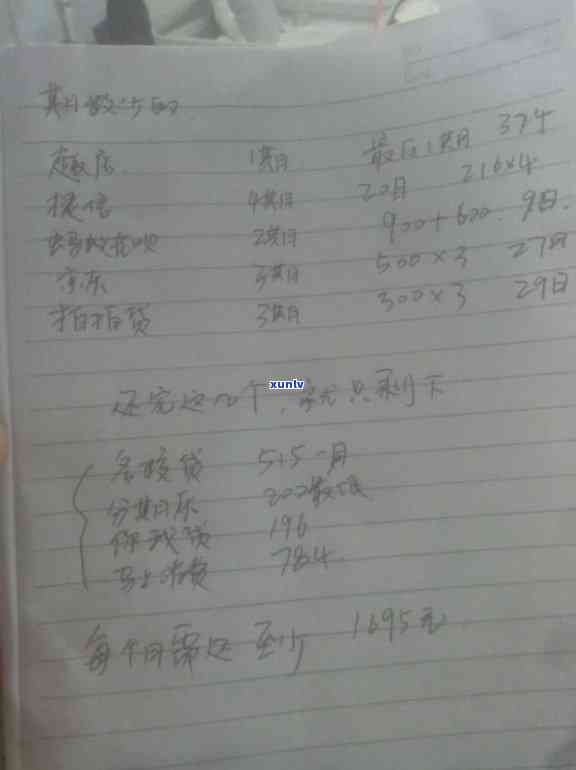 期数少的
趣店 1期 最后1期 374
捷信 4期 20日 216×4
蚂蚁花呗 2期 900+600 9日.
京东 3期 500×3 27日
拍拍贷 3期 300×3 29日
xunlv
还完这几个, 就只剩下
名校贷 515一月
分期乐 200
你我贷 196
马上消费 784
每个月需还 至少 1695元